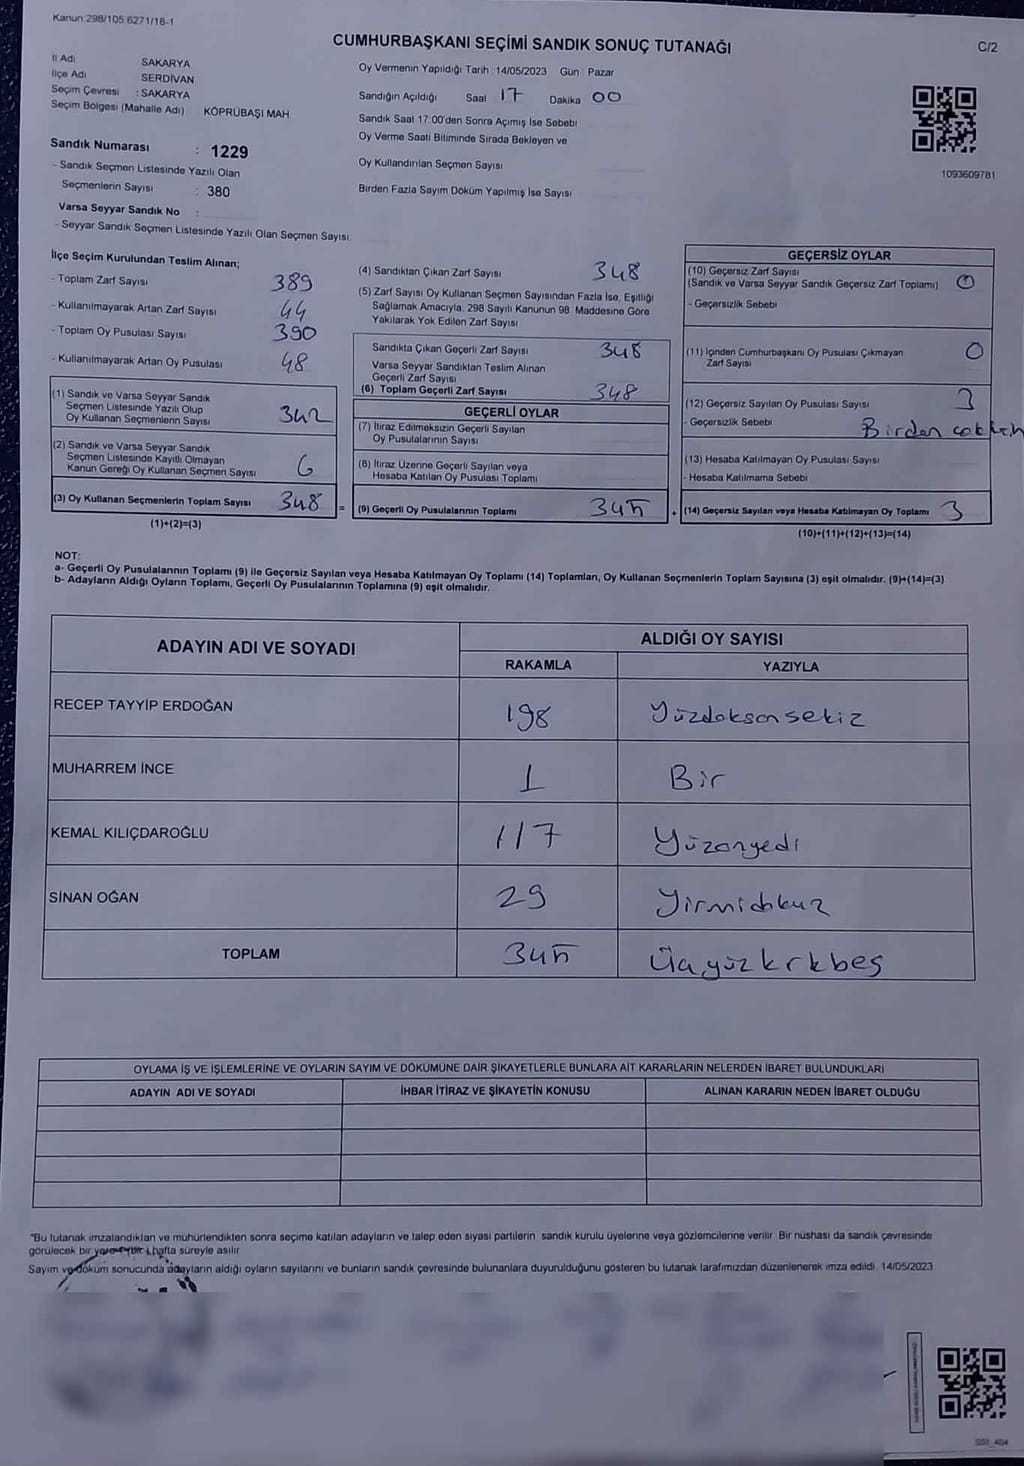 Kanun:298/105 6271/18-1
CUMHURBAŞKANI SEÇİMİ SANDIK SONUÇ TUTANAĞI
C/2
İl Adı SAKARYA
İlçe Adı SERDİVAN
Seçim Çevresi : SAKARYA
Seçim Bölgesi (Mahalle Adı) KÖPRÜBAŞI MAH
Sandık Numarası : 1229
- Sandık Seçmen Listesinde Yazılı Olan
Seçmenlerin Sayısı : 380
Varsa Seyyar Sandık No :
- Seyyar Sandık Seçmen Listesinde Yazılı Olan Seçmen Sayısı:
Oy Vermenin Yapıldığı Tarih :14/05/2023 Gün : Pazar
Sandığın Açıldığı Saat 17 Dakika 00
Sandık Saat 17:00'den Sonra Açmış İse Sebebi
Oy Verme Saati Bitiminde Sırada Bekleyen ve
Oy Kullandırılan Seçmen Sayısı
Birden Fazla Sayım Döküm Yapılmış İse Sayısı
1093609781
İlçe Seçim Kurulundan Teslim Alınan;
- Toplam Zarf Sayısı 389
- Kullanılmayarak Artan Zarf Sayısı 44
- Toplam Oy Pusulası Sayısı 390
- Kullanılmayarak Artan Oy Pusulası 48
(1) Sandık ve Varsa Seyyar Sandık
Seçmen Listesinde Yazılı Olup
Oy Kullanan Seçmenlerin Sayısı 342
(2) Sandık ve Varsa Seyyar Sandık
Seçmen Listesinde Kayıtlı Olmayan
Kanun Gereği Oy Kullanan Seçmen Sayısı 6
(3) Oy Kullanan Seçmenlerin Toplam Sayısı 348 =
(1)+(2)=(3)
(4) Sandıktan Çıkan Zarf Sayısı 348
(5) Zarf Sayısı Oy Kullanan Seçmen Sayısından Fazla İse, Eşitliği
Sağlamak Amacıyla, 298 Sayılı Kanunun 98. Maddesine Göre
Yakılarak Yok Edilen Zarf Sayısı
Sandıkta Çıkan Geçerli Zarf Sayısı 348
Varsa Seyyar Sandıktan Teslim Alınan
Geçerli Zarf Sayısı
(6) Toplam Geçerli Zarf Sayısı 348
GEÇERLİ OYLAR
(7) İtiraz Edilmeksizin Geçerli Sayılan
Oy Pusulalarının Sayısı
(8) İtiraz Üzerine Geçerli Sayılan veya
Hesaba Katılan Oy Pusulası Toplamı
(9) Geçerli Oy Pusulalarının Toplamı 345 +
GEÇERSİZ OYLAR
(10) Geçersiz Zarf Sayısı
(Sandık ve Varsa Seyyar Sandık Geçersiz Zarf Toplamı) 0
- Geçersizlik Sebebi
(11) İçinden Cumhurbaşkanı Oy Pusulası Çıkmayan
Zarf Sayısı 0
(12) Geçersiz Sayılan Oy Pusulası Sayısı 3
- Geçersizlik Sebebi Birden
(13) Hesaba Katılmayan Oy Pusulası Sayısı
- Hesaba Katılmama Sebebi
(14) Geçersiz Sayılan veya Hesaba Katılmayan Oy Toplamı 3
(10)+(11)+(12)+(13)=(14)
NOT:
a- Geçerli Oy Pusulalarının Toplamı (9) ile Geçersiz Sayılan veya Hesaba Katılmayan Oy Toplamı (14) Toplamları, Oy Kullanan Seçmenlerin Toplam Sayısına (3) eşit olmalıdır. (9)+(14)=(3)
b- Adayların Aldığı Oyların Toplamı, Geçerli Oy Pusulalarının Toplamına (9) eşit olmalıdır.
ADAYIN ADI VE SOYADI ALDIĞI OY SAYISI
RAKAMLA YAZIYLA
RECEP TAYYİP ERDOĞAN 198 Yüzdoksansekiz
MUHARREM İNCE 1 Bir
KEMAL KILIÇDAROĞLU 117 Yüzonyedi
SİNAN OĞAN 29 Yirmidokuz
TOPLAM 345 Üçyüzkırkbeş
OYLAMA İŞ VE İŞLEMLERİNE VE OYLARIN SAYIM VE DÖKÜMÜNE DAİR ŞİKAYETLERLE BUNLARA AİT KARARLARIN NELERDEN İBARET BULUNDUKLARI
ADAYIN ADI VE SOYADI İHBAR İTİRAZ VE ŞİKAYETİN KONUSU ALINAN KARARIN NEDEN İBARET OLDUĞU
"Bu tutanak imzalandıktan ve mühürlendikten sonra seçime katılan adayların ve talep eden siyasi partilerin sandık kurulu üyelerine veya gözlemcilerine verilir. Bir nüshası da sandık çevresinde
görülecek bir yere (bir) hafta süreyle asılır
Sayım ve döküm sonucunda adayların aldığı oyların sayılarını ve bunların sandık çevresinde bulunanlara duyurulduğunu gösteren bu tutanak tarafımızdan düzenlenerek imza edildi. 14/05/2023